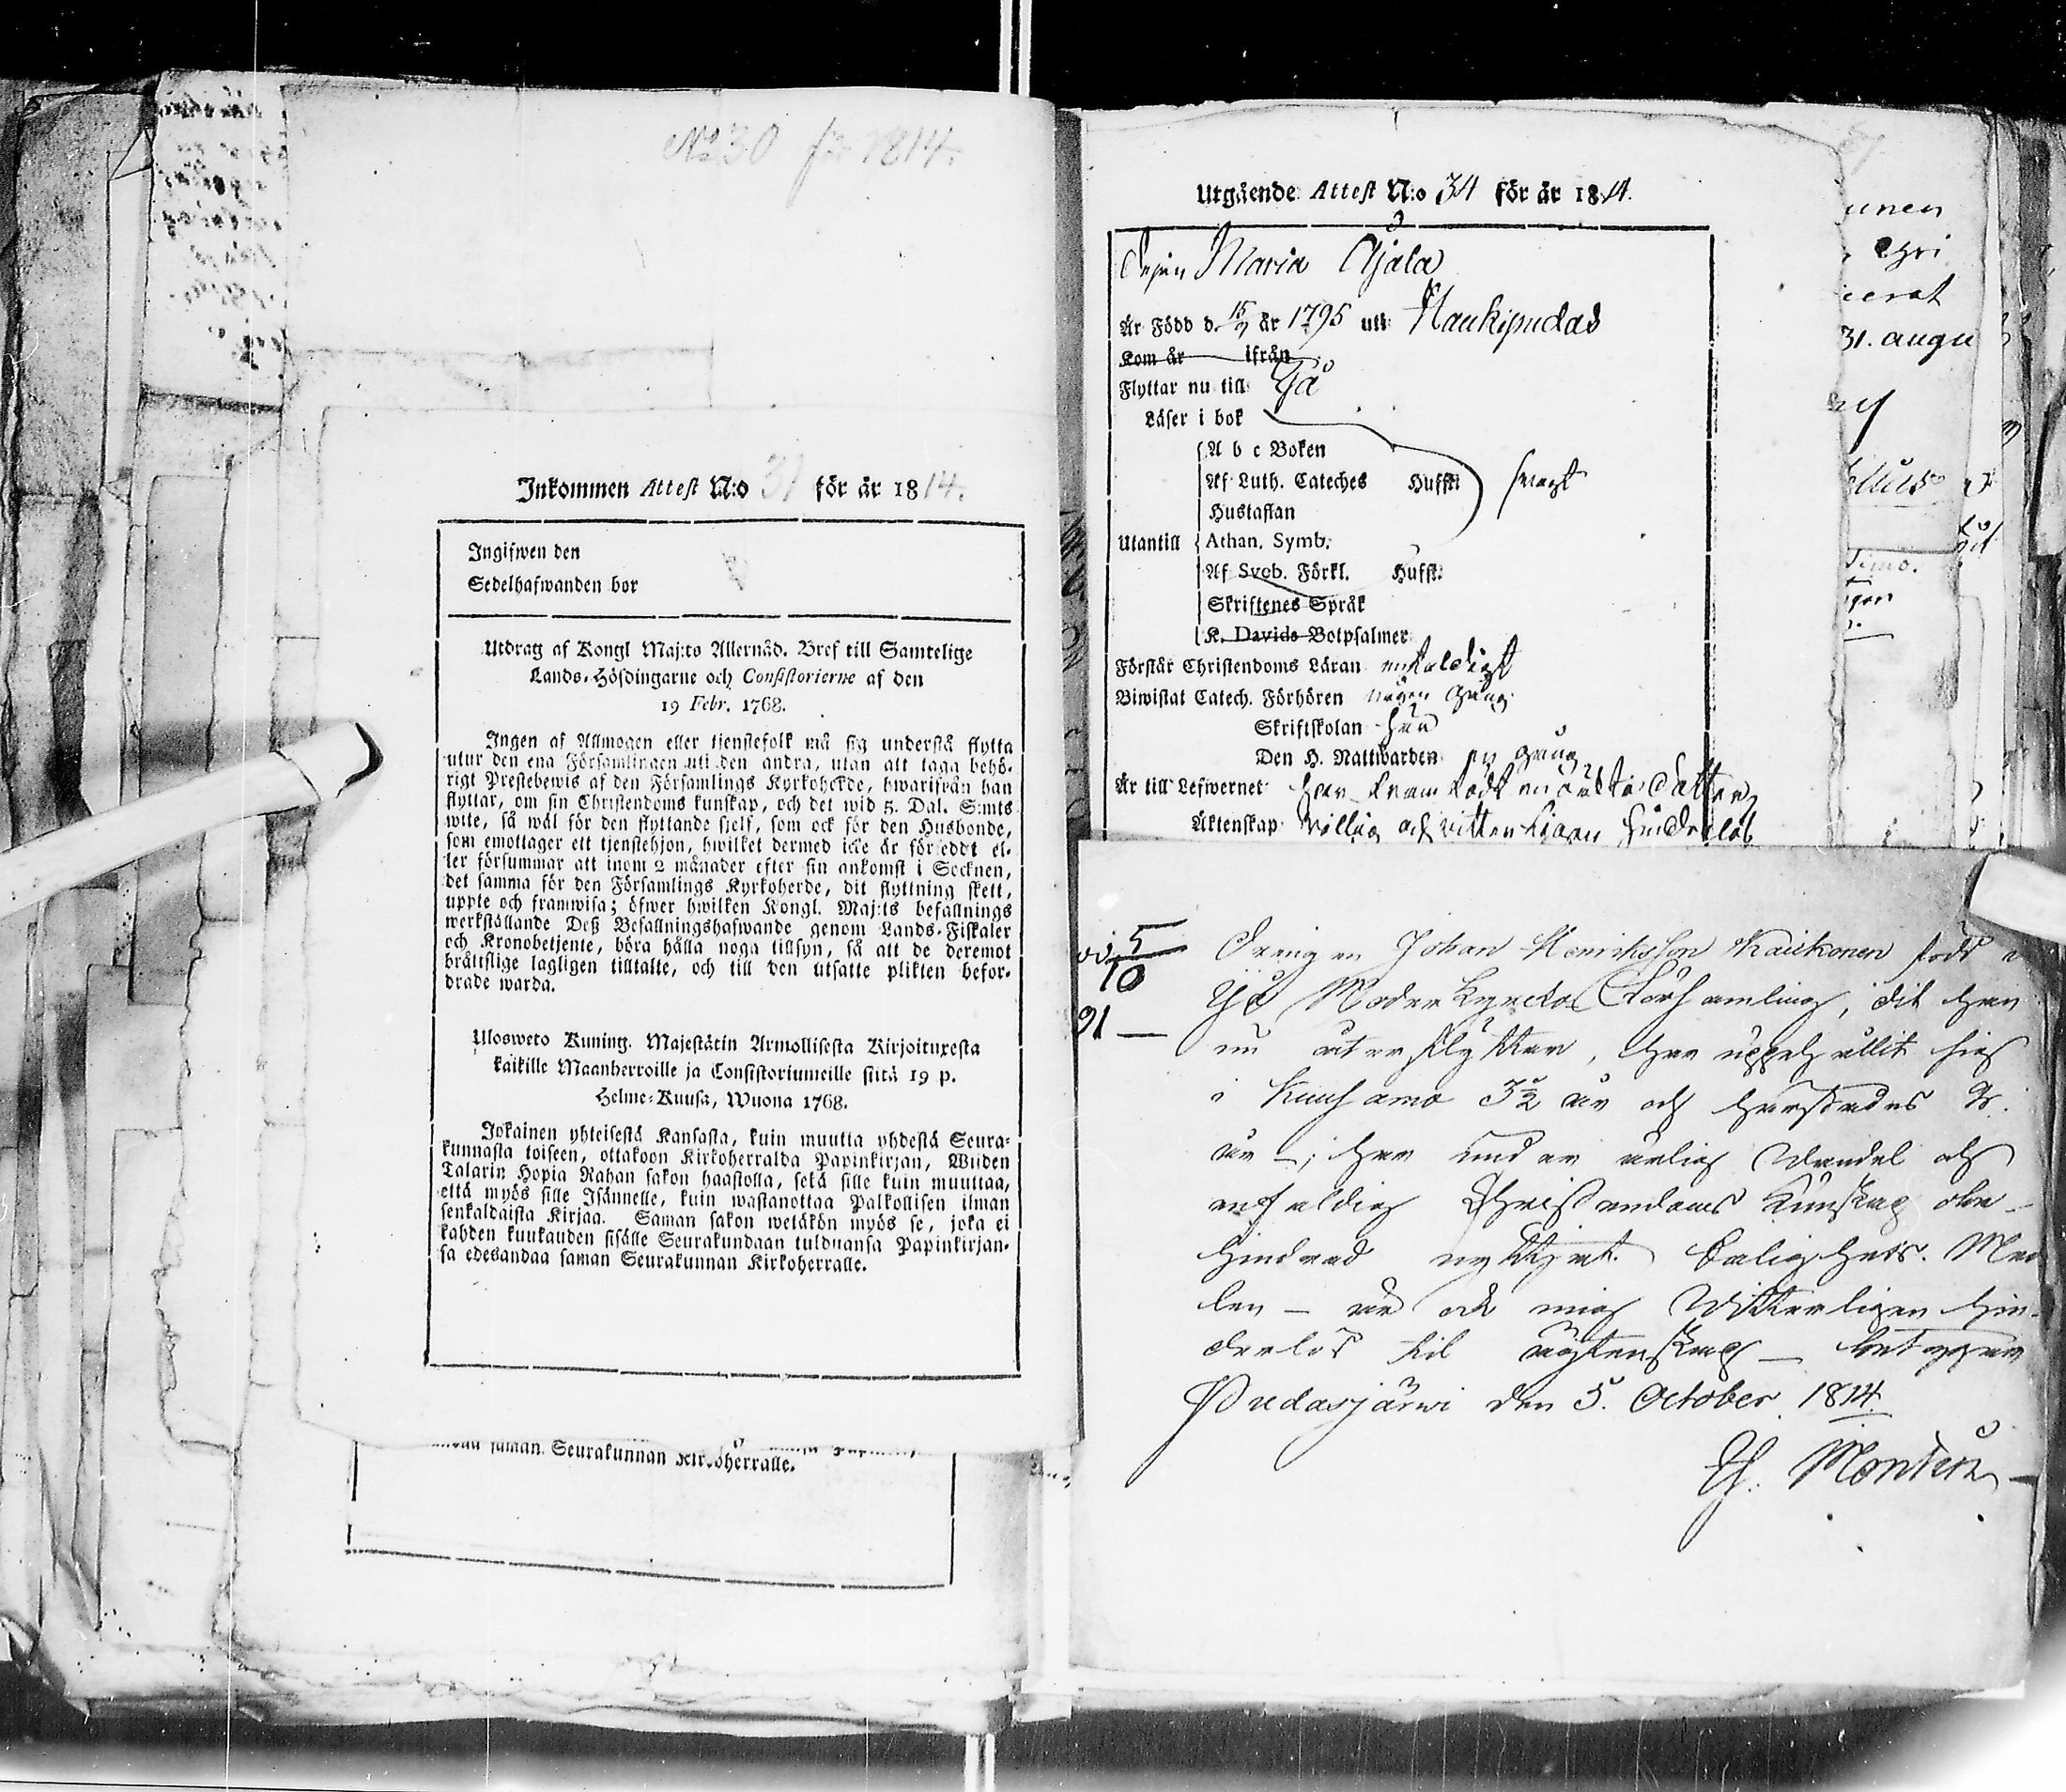 No 30 för 1814.
Inkommen Attest N:o 31 för år 1814.
Ingifwen den
Sedelhafwanden bor
Utdrag af Kongl Maj:ts Allernåd. Bref till Samtelige
Lands-Höfdingarne och Consistorierne af den
19 Febr. 1768.
Ingen af Allmogen eller tjenstefolk må sig understå flytta
utur den ena Församlingen uti den andra, utan att taga behö-
rigt Prestebewis af den Församlings Kyrkoherde, hwarifrån han
flyttar, om sin Christendoms kunskap, och det wid 5. Dal. S:mts
wite, så wäl för den flyttande sjelf, som ock för den Husbonde,
som emottager ett tjenstehjon, hwilket dermed icke är försedt el-
ler försummar att inom 2 månader efter sin ankomst i Socknen,
det samma för den Församlings Kyrkoherde, dit flyttning skett,
uppte och framwisa; öfwer hwilken Kongl. Maj:ts befallnings
werkställande Deß Befallningshafwande genom Lands-Fiskaler
och Kronobetjente, böra hålla noga tillsyn, så att de deremot
bråttslige lagligen tilltalte, och till den utsatte plikten befor-
drade warda.
Ulosweto Kuning. Majestätin Armollisesta Kirjoituxesta
kaikille Maanherroille ja Consistoriumeille siitä 19 p.
Helme-Kuusa, Wuona 1768.
Jokainen yhteisestä Kansasta, kuin muutta yhdestä Seura-
kunnasta toiseen, ottakoon Kirkoherralda Papinkirjan, Wiiden
Talarin Hopia Rahan sakon haastolla, setä sille kuin muuttaa,
että myös sille Isännelle, kuin wastanottaa Palkollisen ilman
senkaldaista Kirjaa. Saman sakon wetäkön myös se, joka ei
kahden kuukauden sisälle Seurakundaan tulduansa Papinkirjan-
sa edesandaa saman Seurakunnan Kirkoherralle.
saman Seurakunnan Kirkoherralle.
Utgående Attest N:o 34 för år 1814.
Pigan Maria Ajala
Är Född d. 15/7 år 1795 uti Haukipudas
Kom år ifrån
Flyttar nu till Ijå
Läser i bok
A b c Boken
Af Luth. Cateches Hufst: swagt
Hustaflan
Utantill Athan. Symb.
Af Sveb. Förkl. Hufst:
Skriftenes Språk
K. Davids Botpsalmer
Förstår Christendoms Läran enfaldigt
Biwistat Catech. Förhören någon gång
Skriftskolan här
Den H. Nattwarden en gång
Är till Lefwernet har framfödt en oäkta Dotter
Äktenskap willig och witterligen hinderlös
5
10
91 —
Drengen Johan Henriksson Kaukonen född i
Ijå Moder kyrko Församling, dit han
nu återflyttar, har uppehållit sig
i Kuusamo 3½ år och härstädes
år —; har under ärlig Wandel och
enfaldig Christendoms Kunskap obe-
hindrad nyttjat Salighets Med-
len — är ock mig Witterligen hin-
derlös til ägtenskap — betygar
Pudasjärwi den 5. October 1814.
Montin
unen
31. augu